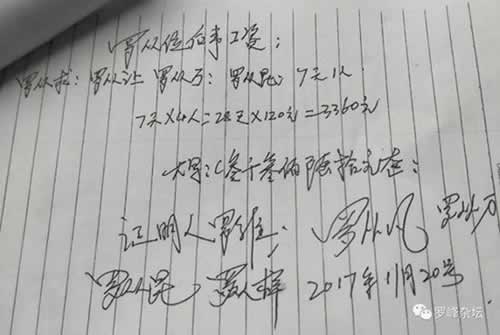 罗从位后事工资:
罗从求: 罗从让 罗从万: 罗从昆: 7天1人
7天×4人=28天×120元=3360元
大写:(叁千叁佰陆拾元整:
证明人罗维: 罗从凡 罗从万
罗从昆 罗从祥 2017年11月20号
罗峰杂坛